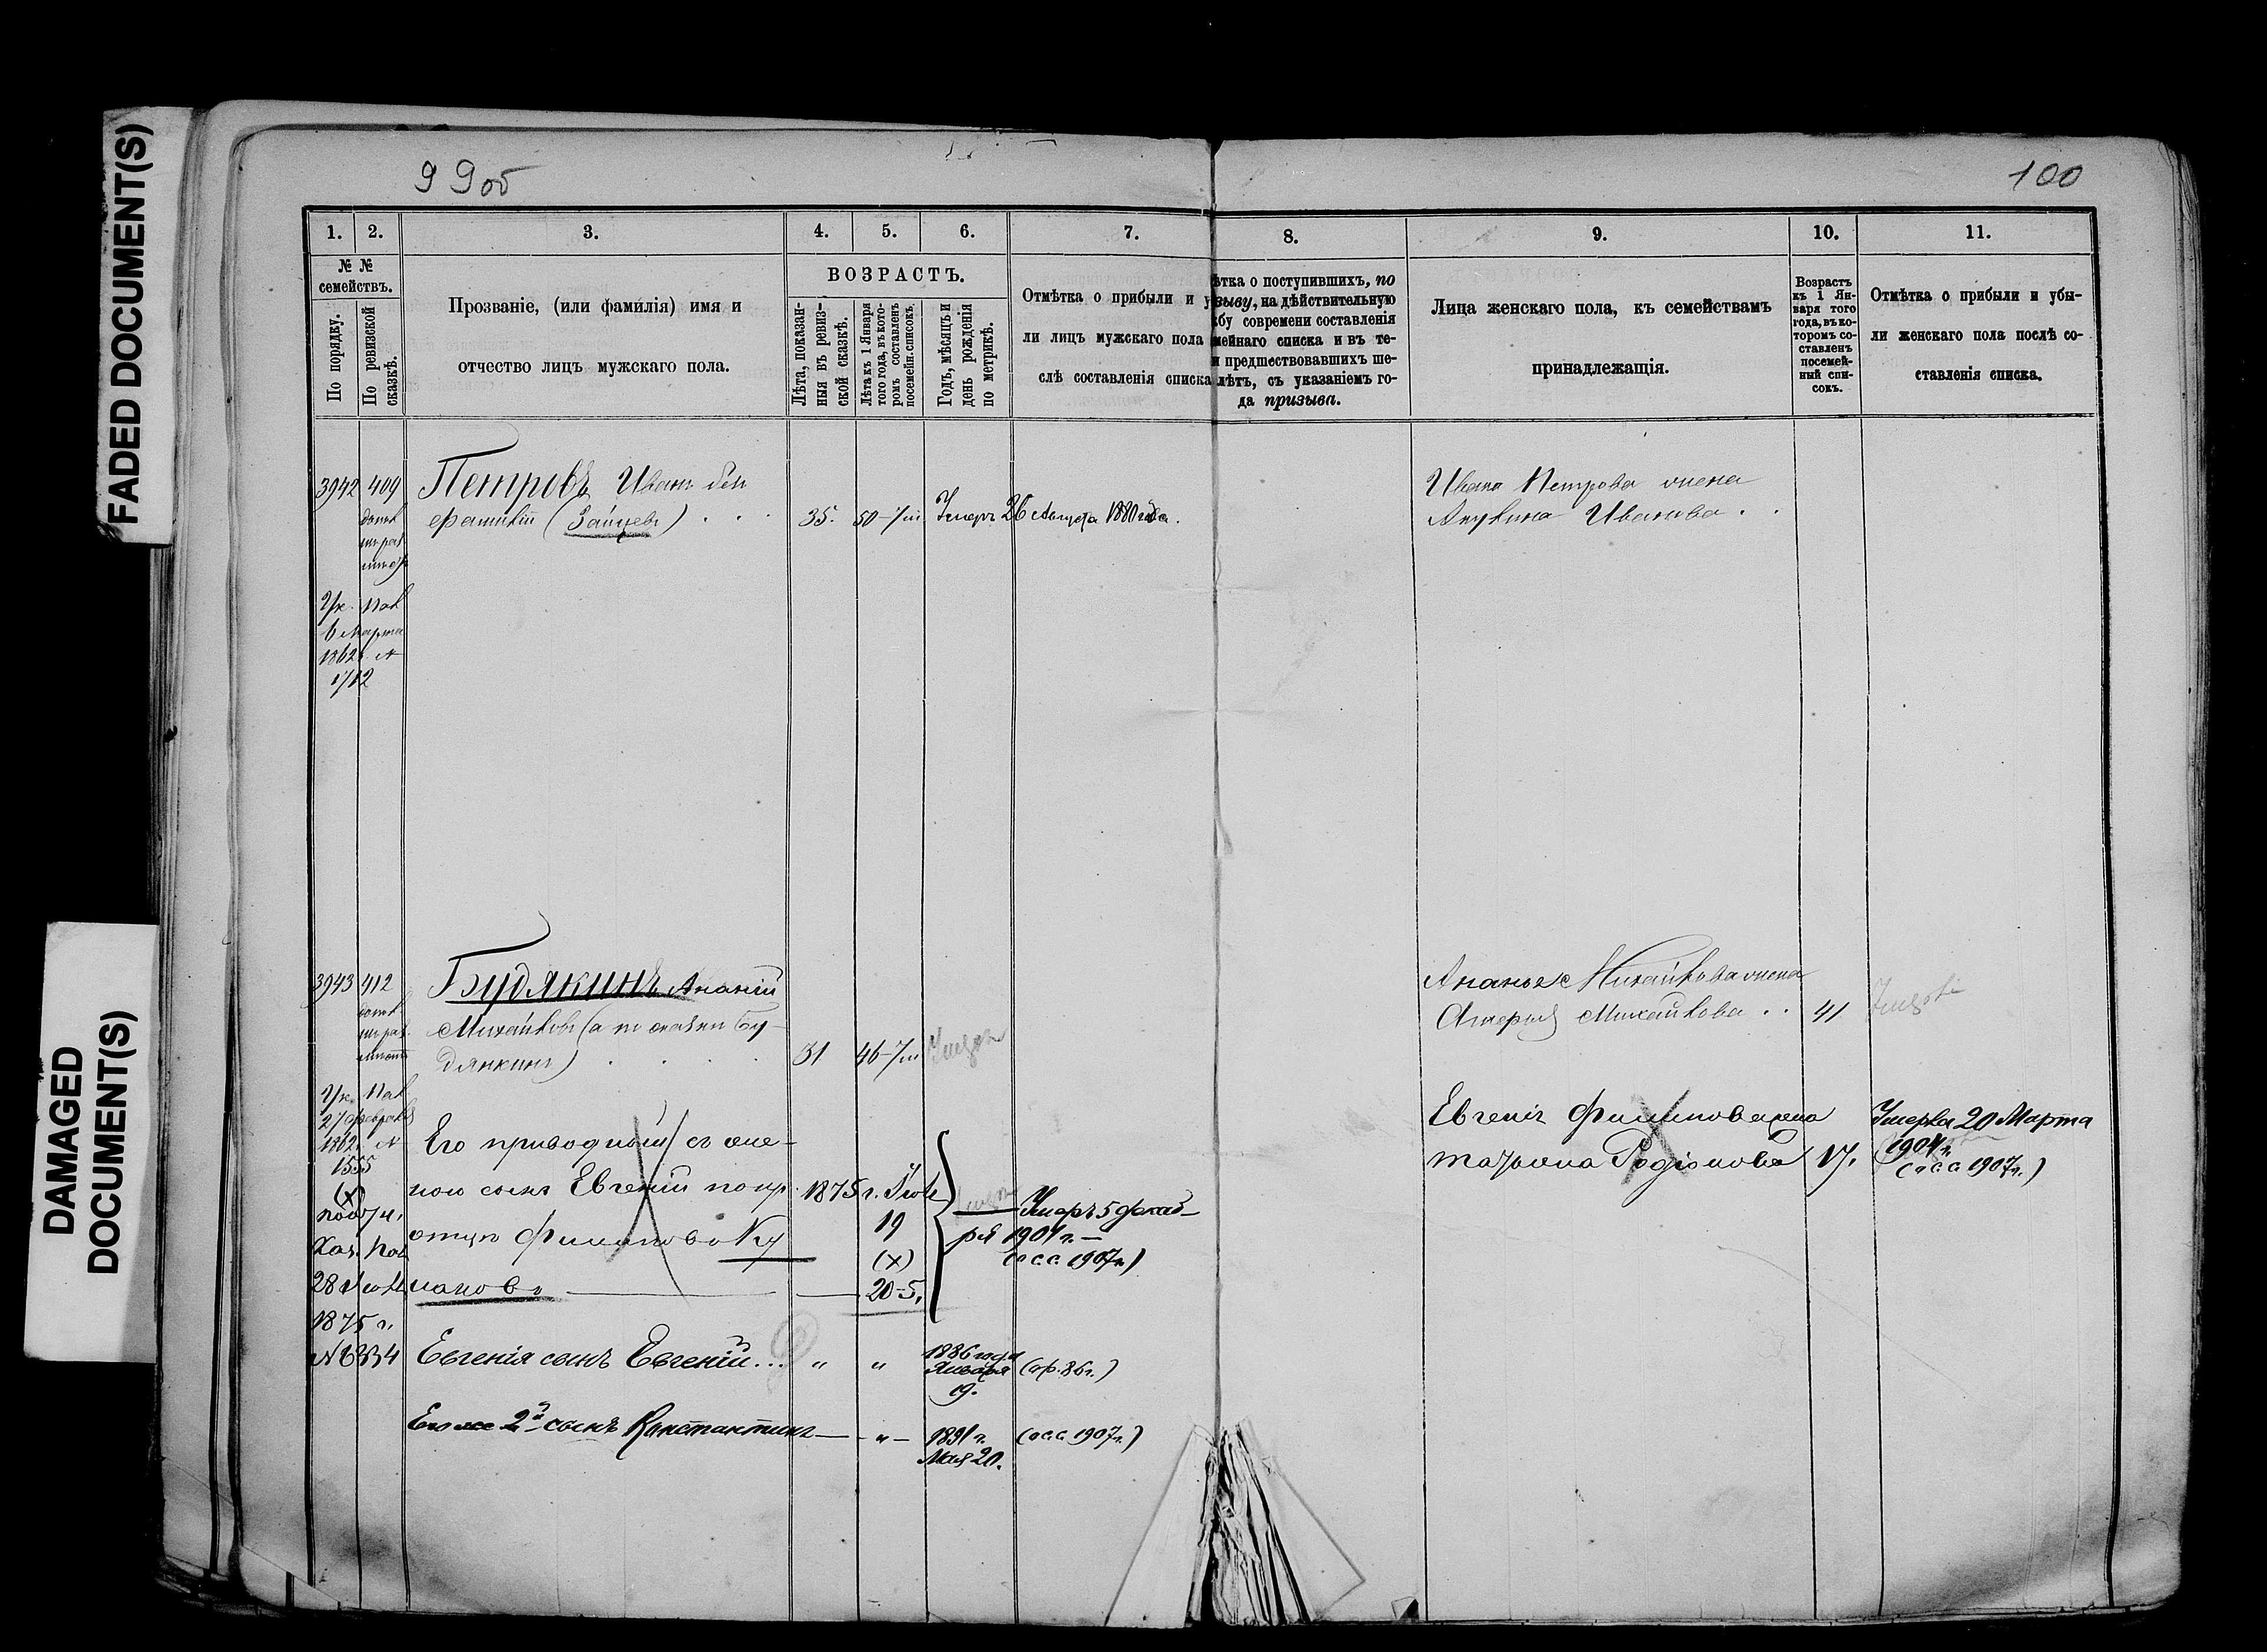 FADED DOCUMENT(S)
DAMAGED
DOCUMENT(S)
99об
100
1.
2.
3.
4.
5.
6.
7.
8.
9.
10.
11.
№ №
семействъ.
По порядку.
По ревизской
сказкѣ.
Прозваніе, (или фамилія) имя и
отчество лицъ мужскаго пола.
ВОЗРАСТЪ.
Лѣта, показан-
ныя въ ревиз-
ской сказкѣ.
Лѣта къ 1 Января
того года, въ кото-
ромъ составленъ
посемейн. списокъ.
Годъ, мѣсяцъ и
день рожденія
по метрикѣ.
Отмѣтка о прибыли и у
ли лицъ мужскаго пола
слѣ составленія списка
ѣтка о поступившихъ, по
зыву, на дѣйствительную
бу современи составленія
мейнаго списка и въ те-
и предшествовавшихъ ше-
лѣтъ, съ указаніемъ го-
да призыва.
Лица женскаго пола, къ семействамъ
принадлежащія.
Возрастъ
къ 1 Ян-
варя того
года, въ ко-
торомъ со-
ставленъ
посемей-
ный спи-
сокъ.
Отмѣтка о прибыли и убы-
ли женскаго пола послѣ со-
ставленія списка.
3942 409
Петровъ Иванъ безъ
фамиліи (Зайцевъ) . . .
35.
50-ти
Умеръ 26 Августа 1880 года.
Ивана Петрова жена
Акулина Иванова . .
Ук. Пал
6 Марта
1862 г. №
1712
3943 412
Будякинъ Ананій
Михайловъ (а по сказки Бу-
дянкинъ)
31
46-ти
Умеръ
Ананья Михайлова жена
Михайлова . . 41
Ук. Пал
27 февраля
1862 г. №
1555
(х)
Каз. Пал
28 Іюля
1875 г.
№ 6334
Его приводный съ же-
ною сынъ Евгеній по пр.
отцу Филипповъ Ку
1875 г. Іюля
19
(х)
20-5.
Умеръ 5 декаб-
ря 1901 г. —
(о с.с. 1907 г.)
Евгенія Филиппова жена
Татьяна Родіонова 17.
Умерла 20 Марта
1904 г.
(о с.с. 1907 г.)
Евгенія сынъ Евгеній... " "
1886 года
Января
19.
(пр. 86 г.)
Его же 2й сынъ Константинъ — " —
1891 г.
Мая 20.
(о с.с. 1907 г.)